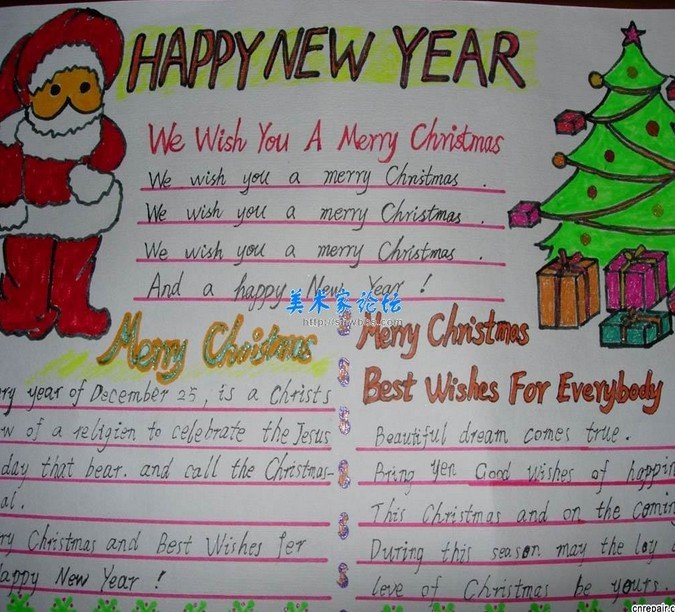 HAPPY NEW YEAR
We Wish You A Merry Christmas
We wish you a merry Christmas .
We wish you a merry Christmas .
We wish you a merry Christmas .
And a happy New Year !
美术家论坛
Merry Christmas
ry year of December 25, is a Christ s
of a religion to celebrate the Jesus
day that bear. and call the Christmas-
al.
ry Christmas and Best Wishes for
appy New Year !
Merry Christmas
Best Wishes For Everybody
Beautiful dream comes true.
Bring yer Good wishes of happin
This Christmas and on the comin
During this season may the loy a
love of Christmas be yours.
cnrepair.c